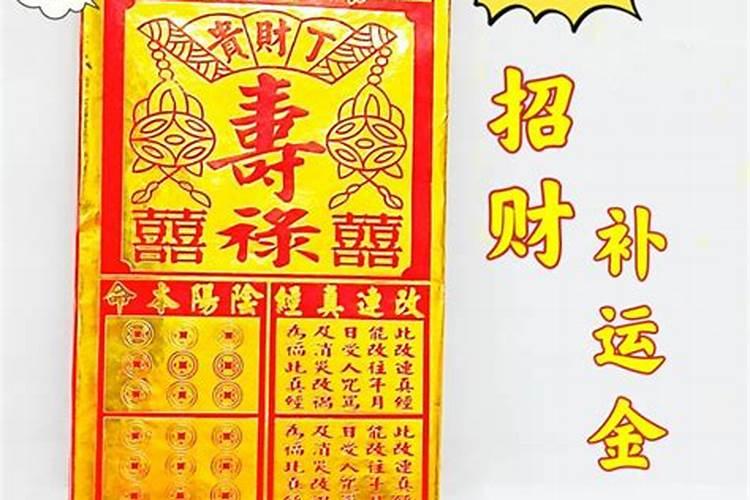 丁財貴
壽
祿
囍
囍
改連真經
陰陽本命
此改連真經
能改往年月
日受人咒罵
及消災改禍
為偏此真經
此改連真
能改往年
日受人咒
及消災改
為偏此真
招财
补运金